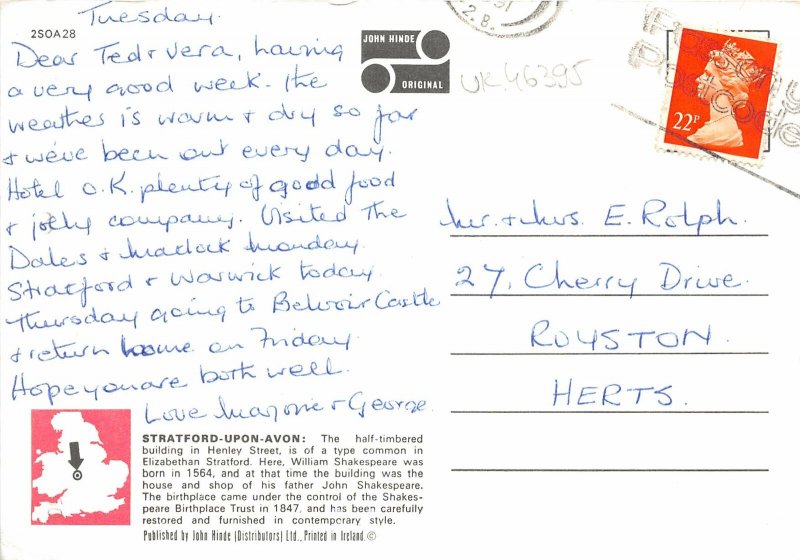 Tuesday.
2SOA28
Dear Ted & Vera, having
a very good week. The
weather is warm & dry so far
& we've been out every day.
Hotel O.K. plenty of good food
& jolly company. Visited The
Dales & Matlock Monday.
Stratford & Warwick today.
Thursday going to Belvoir Castle
& return home on Friday.
Hope you are both well.
Love Marjorie & George.
JOHN HINDE
ORIGINAL
UK.46395
22P
Mr. & Mrs. E. Rolph.
27, Cherry Drive.
ROYSTON.
HERTS.
STRATFORD-UPON-AVON: The half-timbered
building in Henley Street, is of a type common in
Elizabethan Stratford. Here, William Shakespeare was
born in 1564, and at that time the building was the
house and shop of his father John Shakespeare.
The birthplace came under the control of the Shakes-
peare Birthplace Trust in 1847, and has been carefully
restored and furnished in contemporary style.
Published by John Hinde (Distributors) Ltd., Printed in Ireland. ©